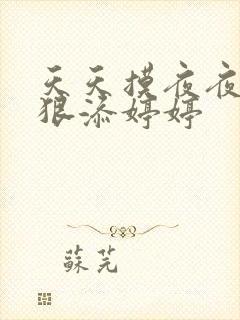 天天摸夜夜
狠添婷婷
蘇芫